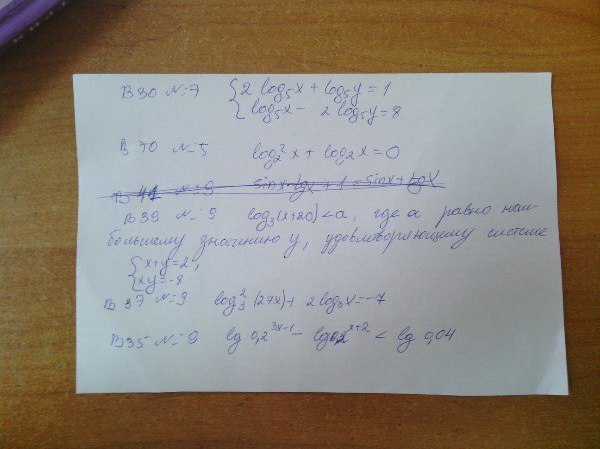 В 30 №7 { 2 log₅x + log₅y = 1
{ log₅x − 2 log₅y = 8
В 70 №5 log₂²x + log₂x = 0
В 41 №9 sinx·tgx + 1 = sinx + tgx
В 39 №9 log₃(x+20) < a, где a равно наи-
большему значению y, удовлетворяющему системе
{ x+y=2,
{ xy=-8
В 37 №9 log₃²(27x) + 2log₃x = -7
В 35 №9 lg 0,2³ˣ⁻¹ − lg 0,2ˣ⁺² < lg 0,04